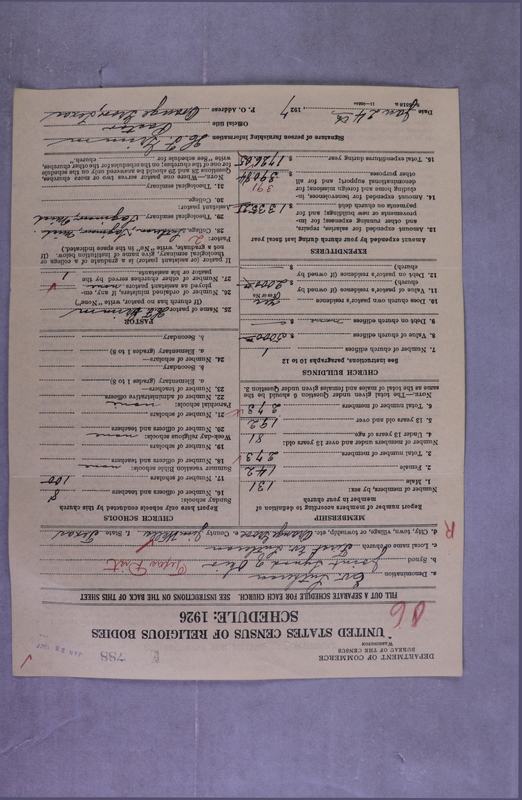 DEPARTMENT OF COMMERCE
BUREAU OF THE CENSUS
WASHINGTON
788
UNITED STATES CENSUS OF RELIGIOUS BODIES
SCHEDULE: 1926
86
FILL OUT A SEPARATE SCHEDULE FOR EACH CHURCH. SEE INSTRUCTIONS ON THE BACK OF THIS SHEET
a. Denomination Ev. Lutheran
b. Synod Joint Synod of Ohio Texas Dist
c. Local name of church First Ev. Lutheran
d. City, town, village, or township, etc. Orange Grove e. County Jim Wells f. State Texas
R
MEMBERSHIP
Report number of members according to definition of member in your church
Number of members, by sex:
1. Male 131
2. Female 142
3. Total number of members 273
Number of members under and over 13 years old:
4. Under 13 years of age 81
5. 13 years old and over 192
6. Total number of members 273
NOTE.—The total given under Question 6 should be the same as the total of males and females given under Question 3.
CHURCH BUILDINGS
See instructions, paragraphs 10 to 12
7. Number of church edifices 1
8. Value of church edifices $ 5000
9. Debt on church edifices $ none
10. Does church own pastor's residence yes
(Yes or No)
11. Value of pastor's residence (if owned by church) $ 2000
12. Debt on pastor's residence (if owned by church) $
EXPENDITURES
Amount expended by your church during last fiscal year
13. Amount expended for salaries, repairs, and other running expenses; for improvements or new buildings; and for payments on church debt $
14. Amount expended for benevolences, including home and foreign missions; for denominational support; and for all other purposes $
15. Total expenditures during year $
CHURCH SCHOOLS
Report here only schools conducted by this church
Sunday schools:
16. Number of officers and teachers 8
17. Number of scholars 100
Summer vacation Bible schools:
18. Number of officers and teachers none
19. Number of scholars
Week-day religious schools:
20. Number of officers and teachers none
21. Number of scholars
Parochial schools:
22. Number of administrative officers none
23. Number of teachers:
a. Elementary (grades 1 to 8)
b. Secondary
24. Number of scholars:
a. Elementary (grades 1 to 8)
b. Secondary
PASTOR
25. Name of pastor
(If church has no pastor, write "None")
26. Number of ordained ministers, if any, employed as assistant pastors none
27. Number of other churches served by the pastor or his assistants 1
If pastor (or assistant pastor) is a graduate of a college or theological seminary, give name of institution. (If not a graduate, write "No" in the space indicated.)
Pastor:
28. College
29. Theological seminary
Assistant pastor:
30. College
31. Theological seminary
NOTE.—Where one pastor serves two or more churches, Questions 28 and 29 should be answered only on the schedule for one of the churches; on the schedule for the other churches, write "See schedule for church."
Signature of person furnishing information
Official title Pastor
P. O. Address Orange Grove, Texas
Date Jan 24th, 1927